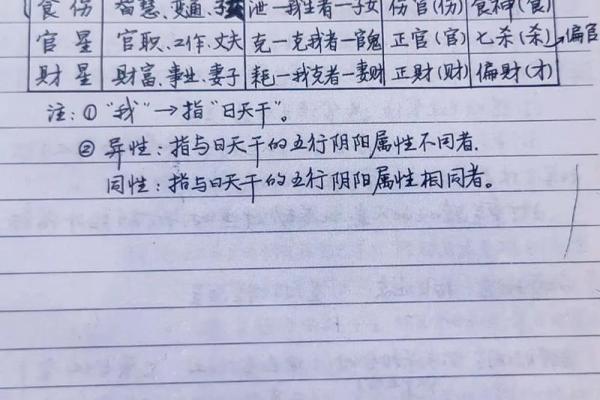 食伤 智慧、变通、子女 泄—我生者—子女 伤官(伤) 食神(食)
官星 官职、工作、丈夫 克—克我者—官鬼 正官(官) 七杀(杀)→偏官
财星 财富、事业、妻子 耗—我克者—妻财 正财(财) 偏财(才)
注:①“我”→指“日天干”。
②异性:指与日天干的五行阴阳属性不同者.
同性:指与日天干的五行阴阳属性相同者。